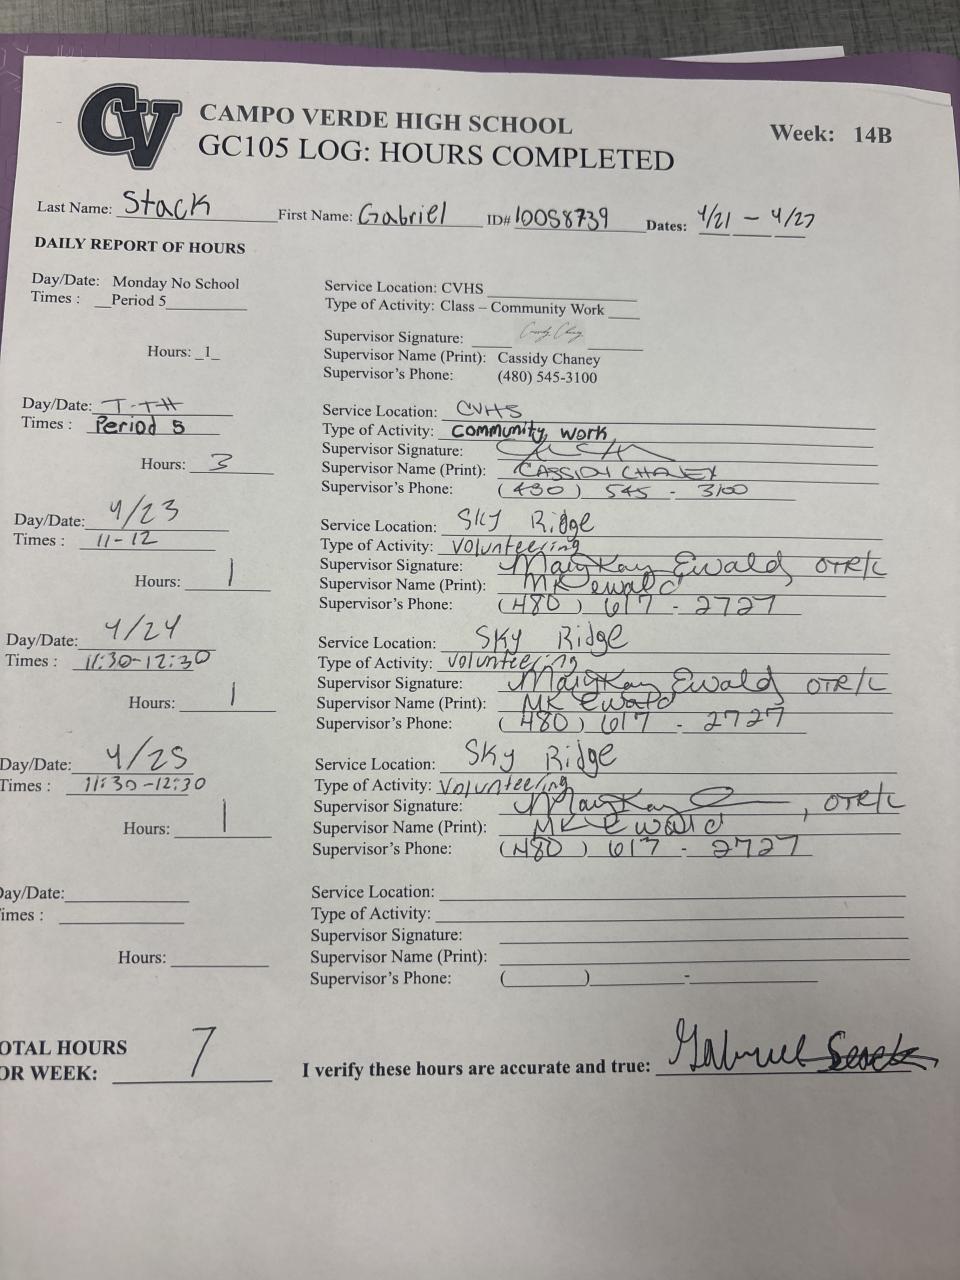 CV
CAMPO VERDE HIGH SCHOOL
GC105 LOG: HOURS COMPLETED
Week: 14B
Last Name: Stack First Name: Gabriel ID# 10058739 Dates: 4/21 - 4/27
DAILY REPORT OF HOURS
Day/Date: Monday No School
Times : Period 5
Hours: 1
Service Location: CVHS
Type of Activity: Class – Community Work
Supervisor Signature:
Supervisor Name (Print): Cassidy Chaney
Supervisor's Phone: (480) 545-3100
Day/Date: T-TH
Times : Period 5
Hours: 3
Service Location: CVHS
Type of Activity: community work
Supervisor Signature:
Supervisor Name (Print): CASSIDY CHANEY
Supervisor's Phone: (480) 545 - 3100
Day/Date: 4/23
Times : 11-12
Hours: 1
Service Location: Sky Ridge
Type of Activity: Volunteering
Supervisor Signature: MaryKay Ewald OTR/L
Supervisor Name (Print): MK Ewald
Supervisor's Phone: (480) 617 - 2727
Day/Date: 4/24
Times : 11:30-12:30
Hours: 1
Service Location: Sky Ridge
Type of Activity: Volunteering
Supervisor Signature: MaryKay Ewald OTR/L
Supervisor Name (Print): MK Ewald
Supervisor's Phone: (480) 617 - 2727
Day/Date: 4/25
Times : 11:30-12:30
Hours: 1
Service Location: Sky Ridge
Type of Activity: Volunteering
Supervisor Signature: MaryKay , OTR/L
Supervisor Name (Print): MK Ewald
Supervisor's Phone: (480) 617 - 2727
Day/Date:
imes :
Hours:
Service Location:
Type of Activity:
Supervisor Signature:
Supervisor Name (Print):
Supervisor's Phone: ( ) -
OTAL HOURS
OR WEEK: 7
I verify these hours are accurate and true: Gabriel